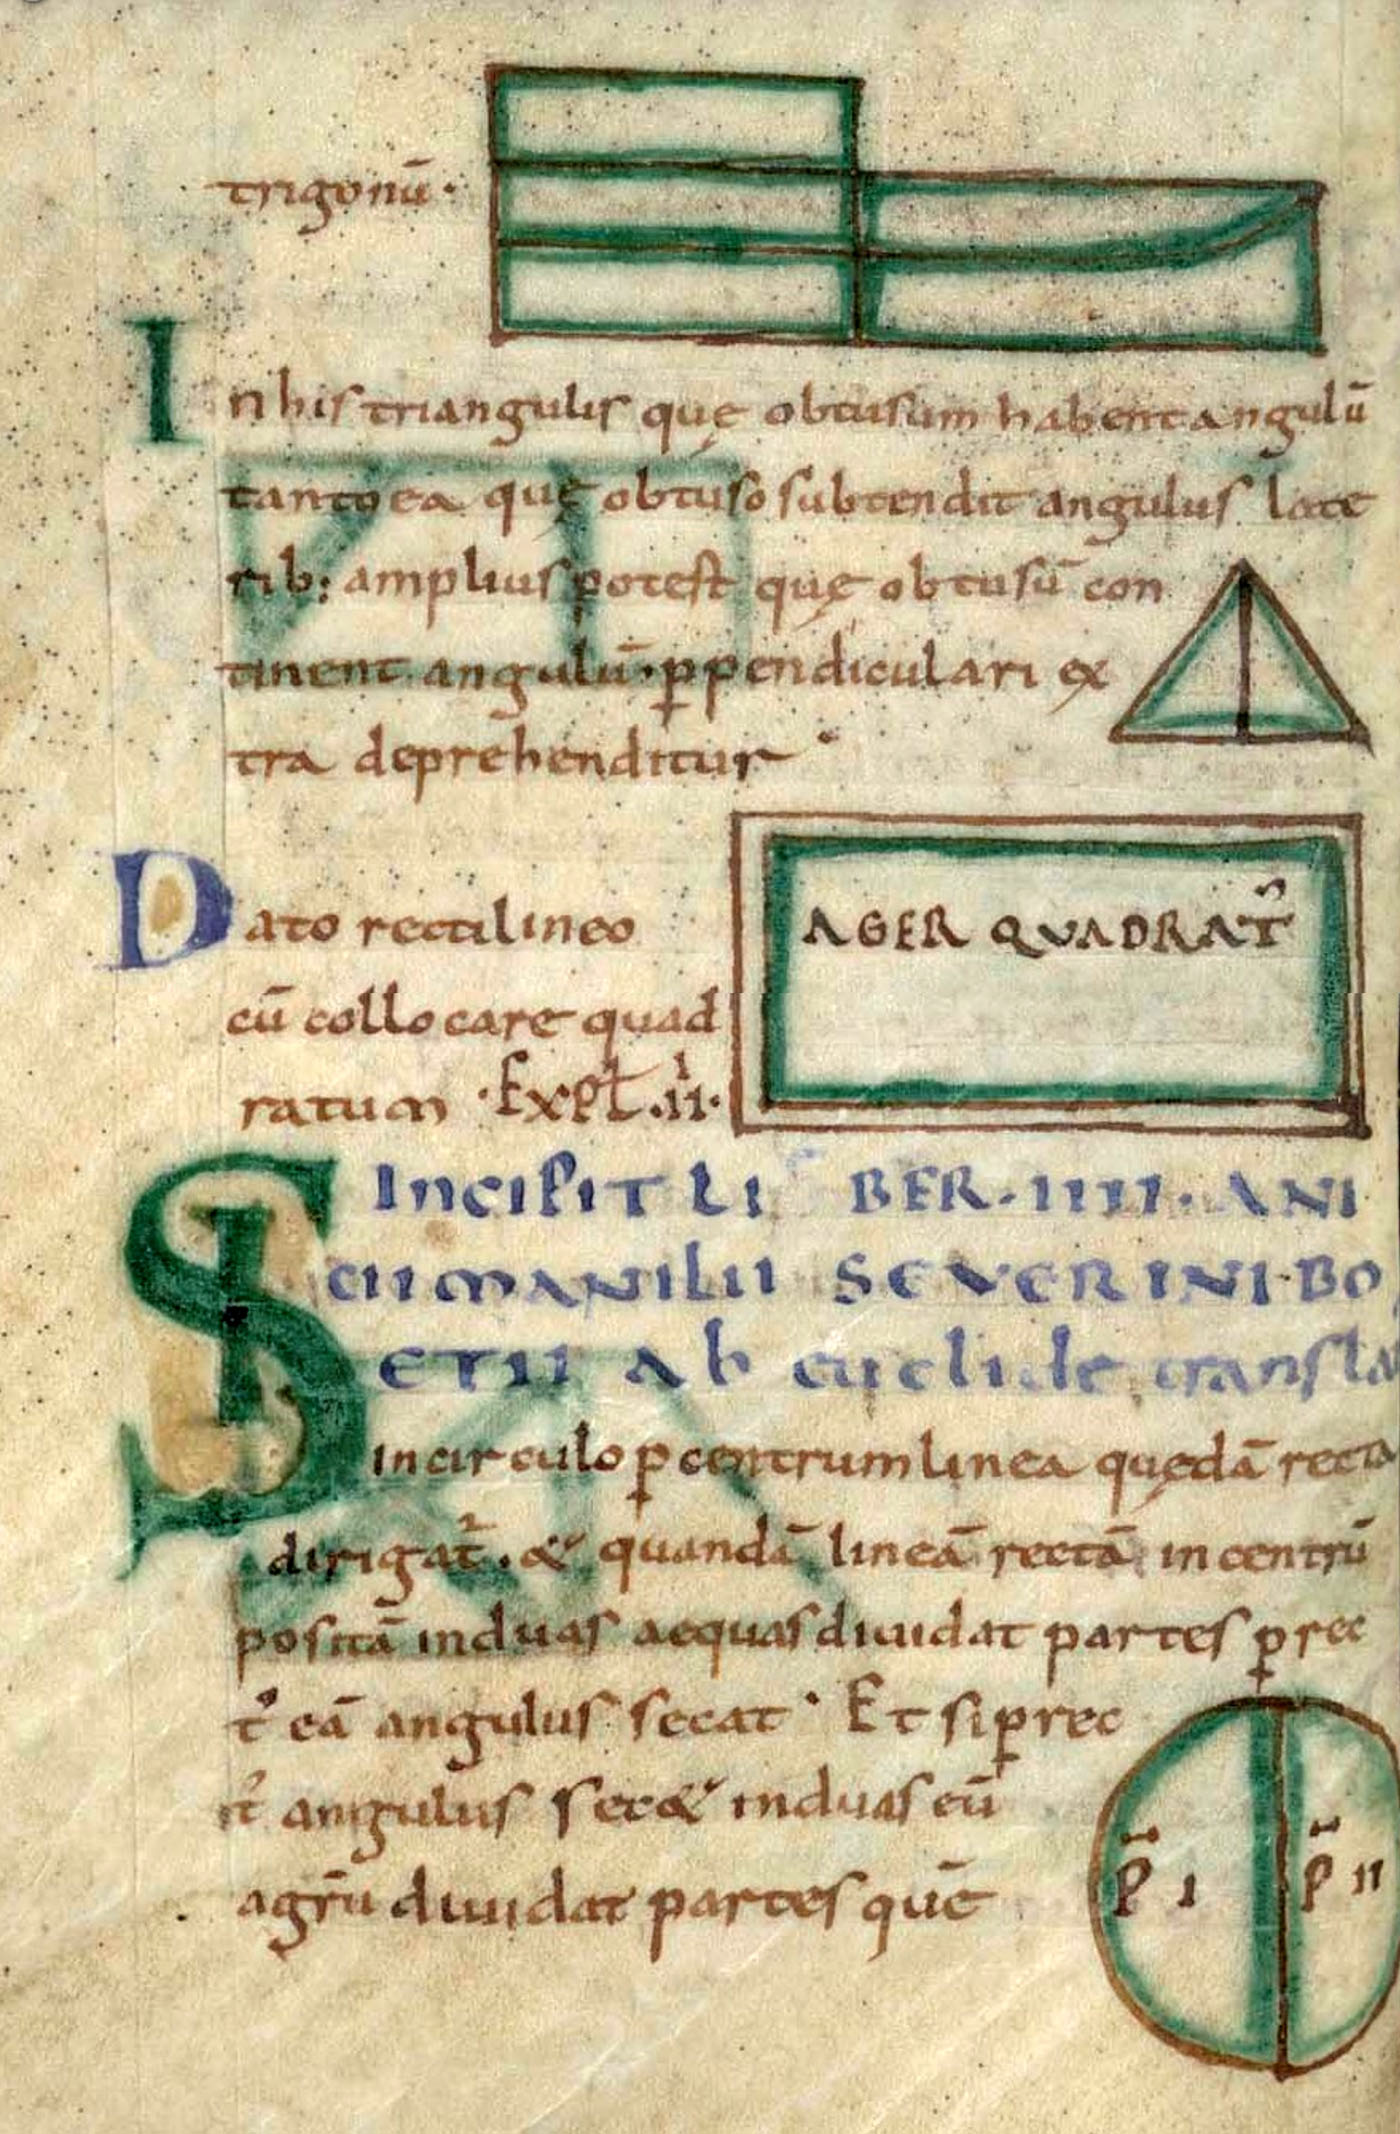 trigonū·
In his triangulis quę obtusum habent angulū
tanto ea quę obtuso subtendit angulus late
rib; amplius potest quę obtusū con
tinent angulū· ꝑpendiculari ex
tra deprehenditur·
Dato rectilineo
AGER QUADRAT᷒
cū collocare quad
ratum · Expƚ .ıı.
INCIPIT LI BER · IIII · ANI
CII MANILII SEVERINI BO
ETII Ab euclide transla
SI in circulo ꝑ centrum linea quędā recta
dirigat᷒. & quandā lineā rectā in centrū
positā in duas aequas diuidat partes ꝑ rec
t᷒ eā angulus secat · Et si ꝑ rec
t᷒ angulus sec& in duas eū
agrū diuidat partes quē
p̄ ı p̄ ıı